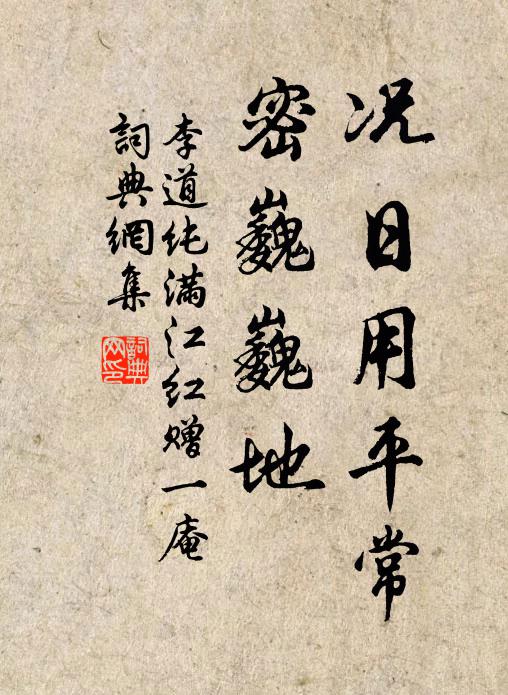 况日用平常
密巍巍地
李道纯满江红赠一庵
詞典網集
詞典网印